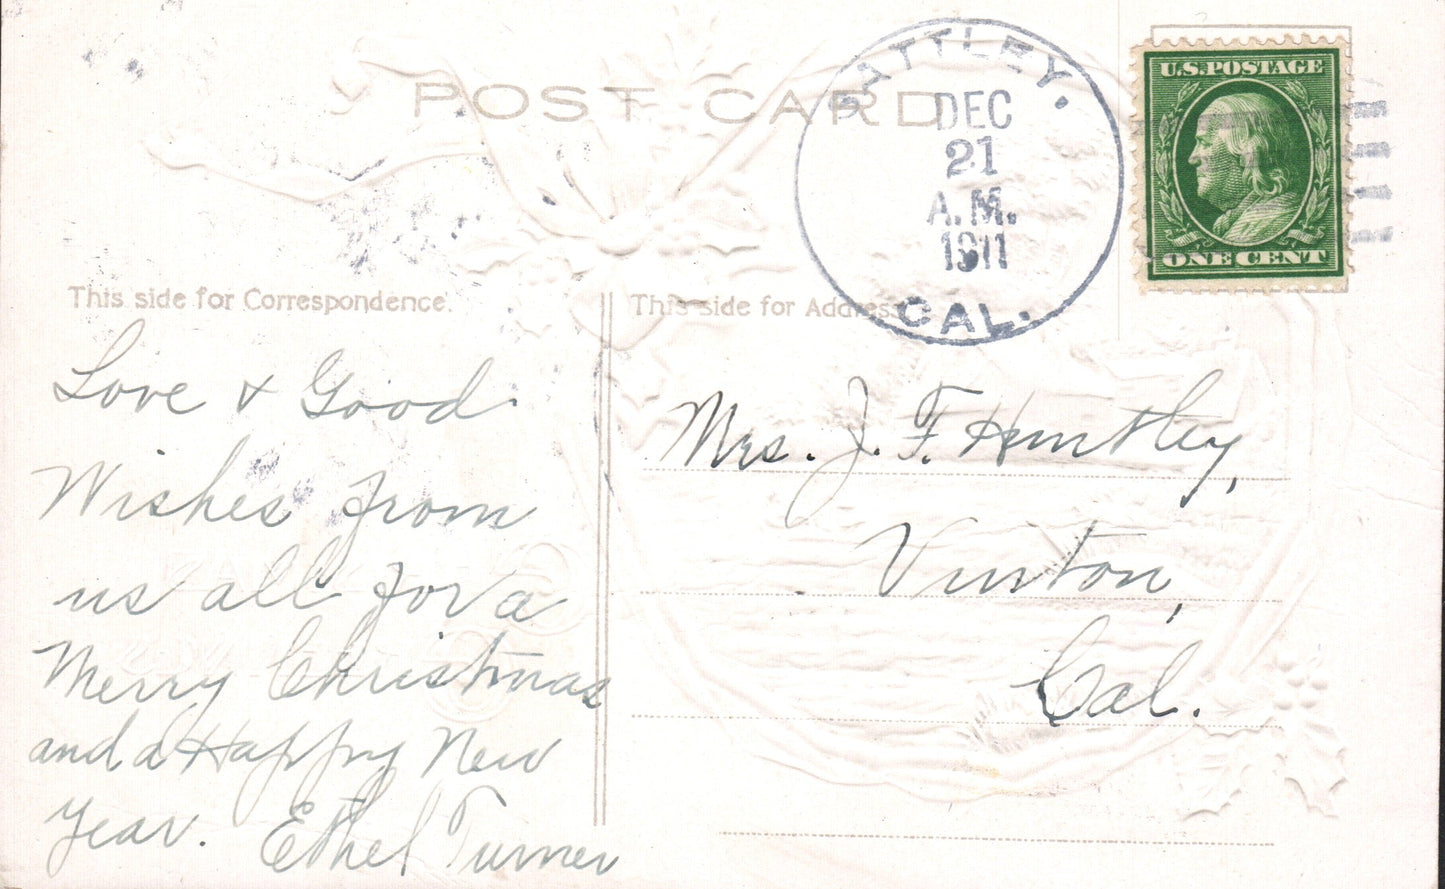 POST CARD
ATTLEY.
DEC
21
A.M.
1911
CAL.
U.S. POSTAGE
ONE CENT
This side for Correspondence.
This side for Address
Love & Good
Wishes from
us all for a
Merry Christmas
and a Happy New
Year. Ethel Turner
Mrs. J. F. Huntley,
Vinton,
Cal.